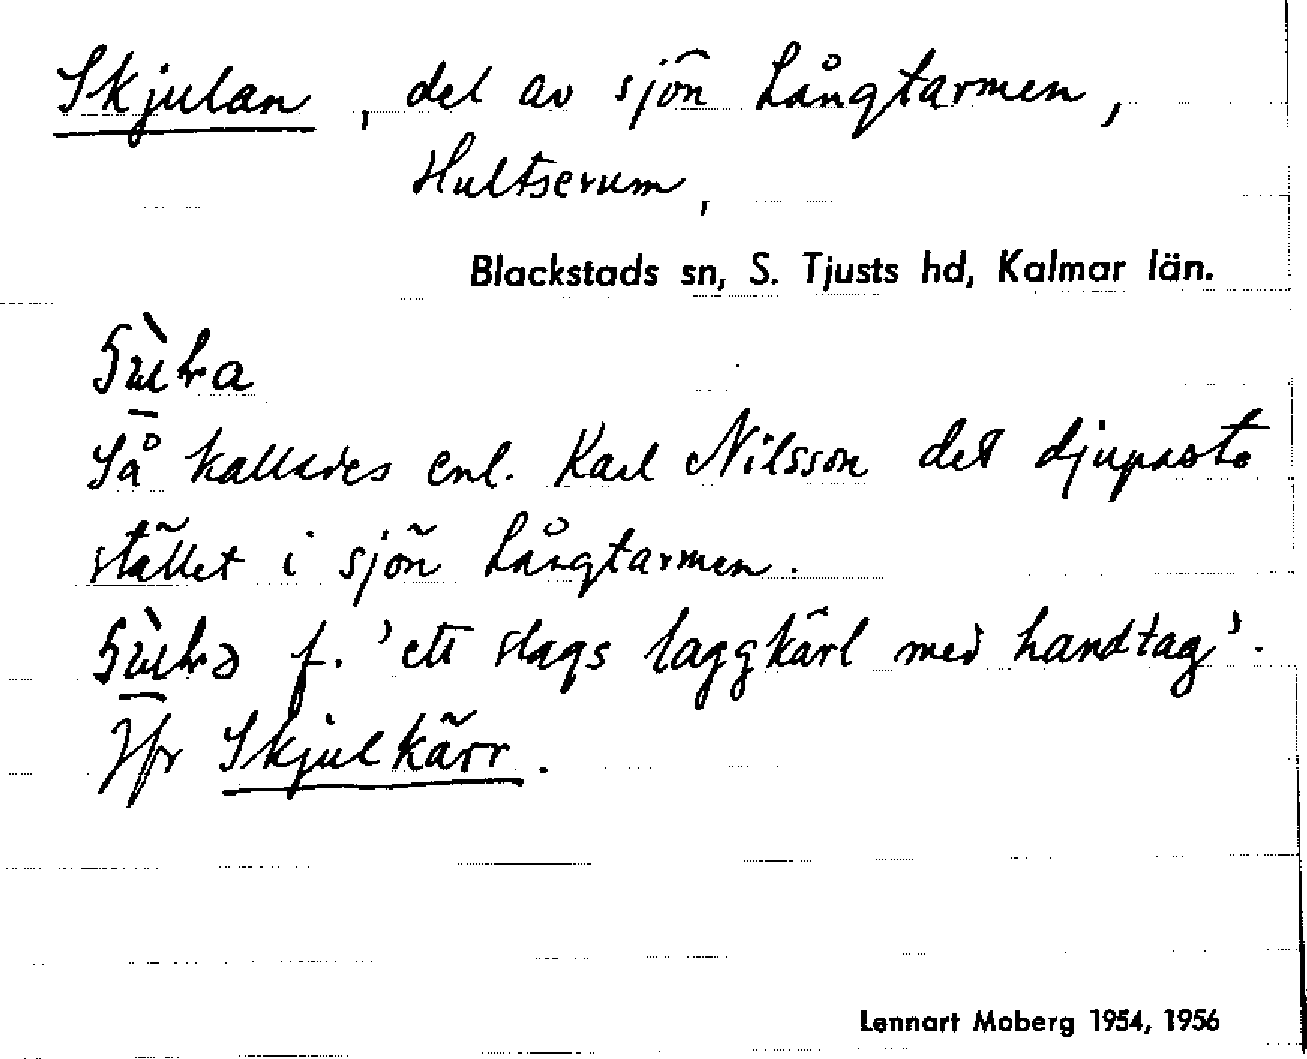 Skjulan, del av sjön Långtarmen,
Hultserum,
Blackstads sn, S. Tjusts hd, Kalmar län.
Så kallades enl. Karl Nilsson det djupaste
stället i sjön Långtarmen.
f. 'ett slags laggkärl med handtag'.
Jfr Skjulkärr.
Lennart Moberg 1954, 1956